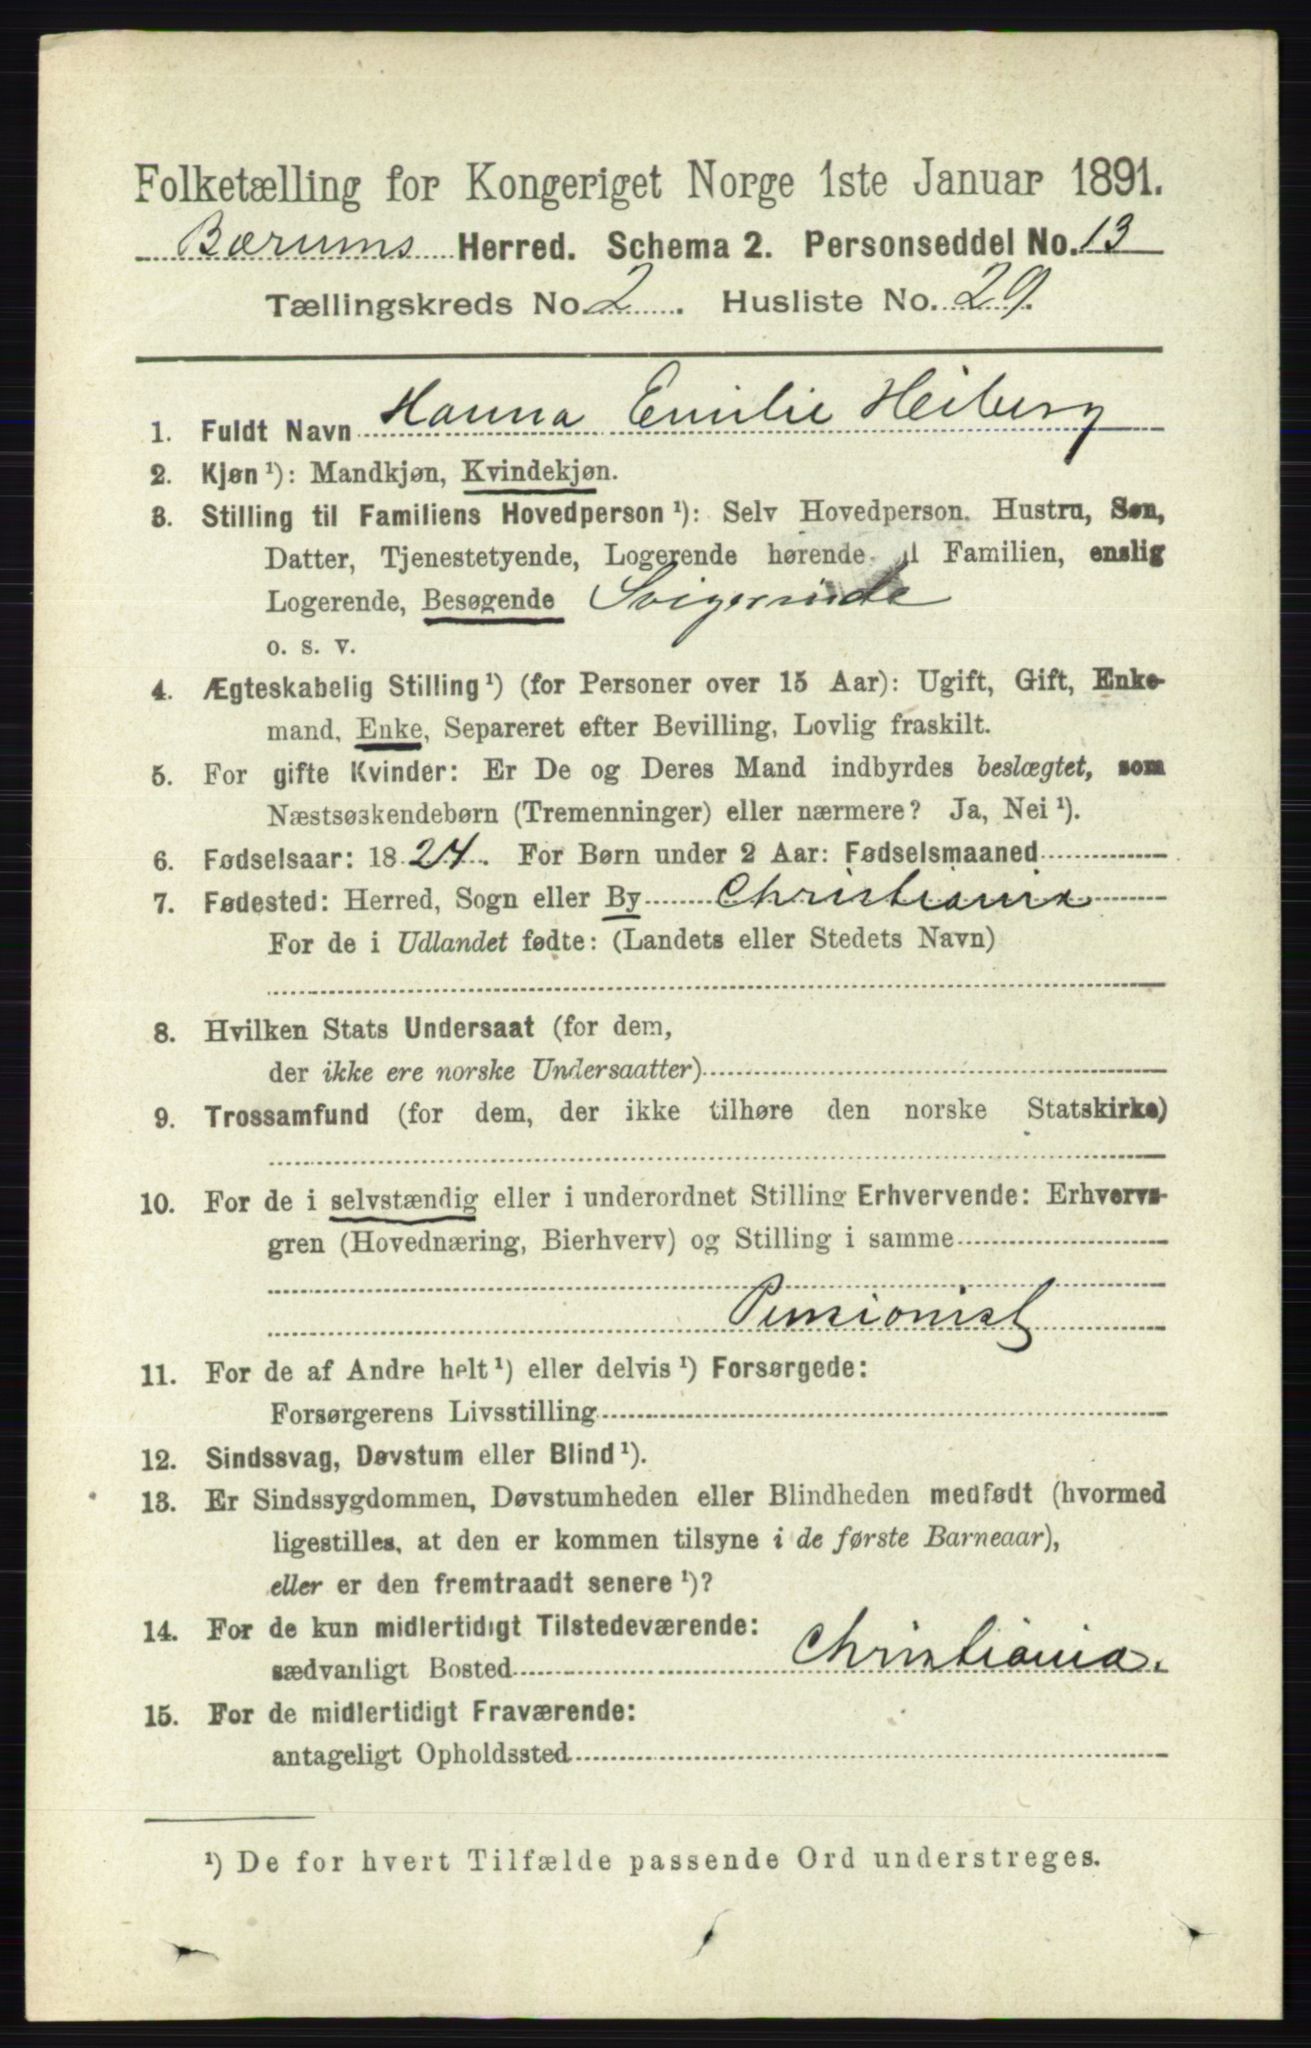 Folketælling for Kongeriget Norge 1ste Januar 1891.
Bærums Herred. Schema 2. Personseddel No. 13
Tællingskreds No. 2. Husliste No. 29.
1. Fuldt Navn Hanna Emilie Heiberg
2. Kjøn ¹): Mandkjøn, Kvindekjøn.
3. Stilling til Familiens Hovedperson ¹): Selv Hovedperson. Hustru, Søn,
Datter, Tjenestetyende, Logerende hørende til Familien, enslig
Logerende, Besøgende Svigerinde
o. s. v.
4. Ægteskabelig Stilling ¹) (for Personer over 15 Aar): Ugift, Gift, Enke-
mand, Enke, Separeret efter Bevilling, Lovlig fraskilt.
5. For gifte Kvinder: Er De og Deres Mand indbyrdes beslægtet, som
Næstsøskendebørn (Tremenninger) eller nærmere? Ja, Nei ¹).
6. Fødselsaar: 1824. For Børn under 2 Aar: Fødselsmaaned
7. Fødested: Herred, Sogn eller By Christiania
For de i Udlandet fødte: (Landets eller Stedets Navn)
8. Hvilken Stats Undersaat (for dem,
der ikke ere norske Undersaatter)
9. Trossamfund (for dem, der ikke tilhøre den norske Statskirke)
10. For de i selvstændig eller i underordnet Stilling Erhvervende: Erhvervs-
gren (Hovednæring, Bierhverv) og Stilling i samme
Pensionist
11. For de af Andre helt ¹) eller delvis ¹) Forsørgede:
Forsørgerens Livsstilling
12. Sindssvag, Døvstum eller Blind ¹).
13. Er Sindssygdommen, Døvstumheden eller Blindheden medfødt (hvormed
ligestilles, at den er kommen tilsyne i de første Barneaar),
eller er den fremtraadt senere ¹)?
14. For de kun midlertidigt Tilstedeværende:
sædvanligt Bosted Christiania.
15. For de midlertidigt Fraværende:
antageligt Opholdssted
¹) De for hvert Tilfælde passende Ord understreges.